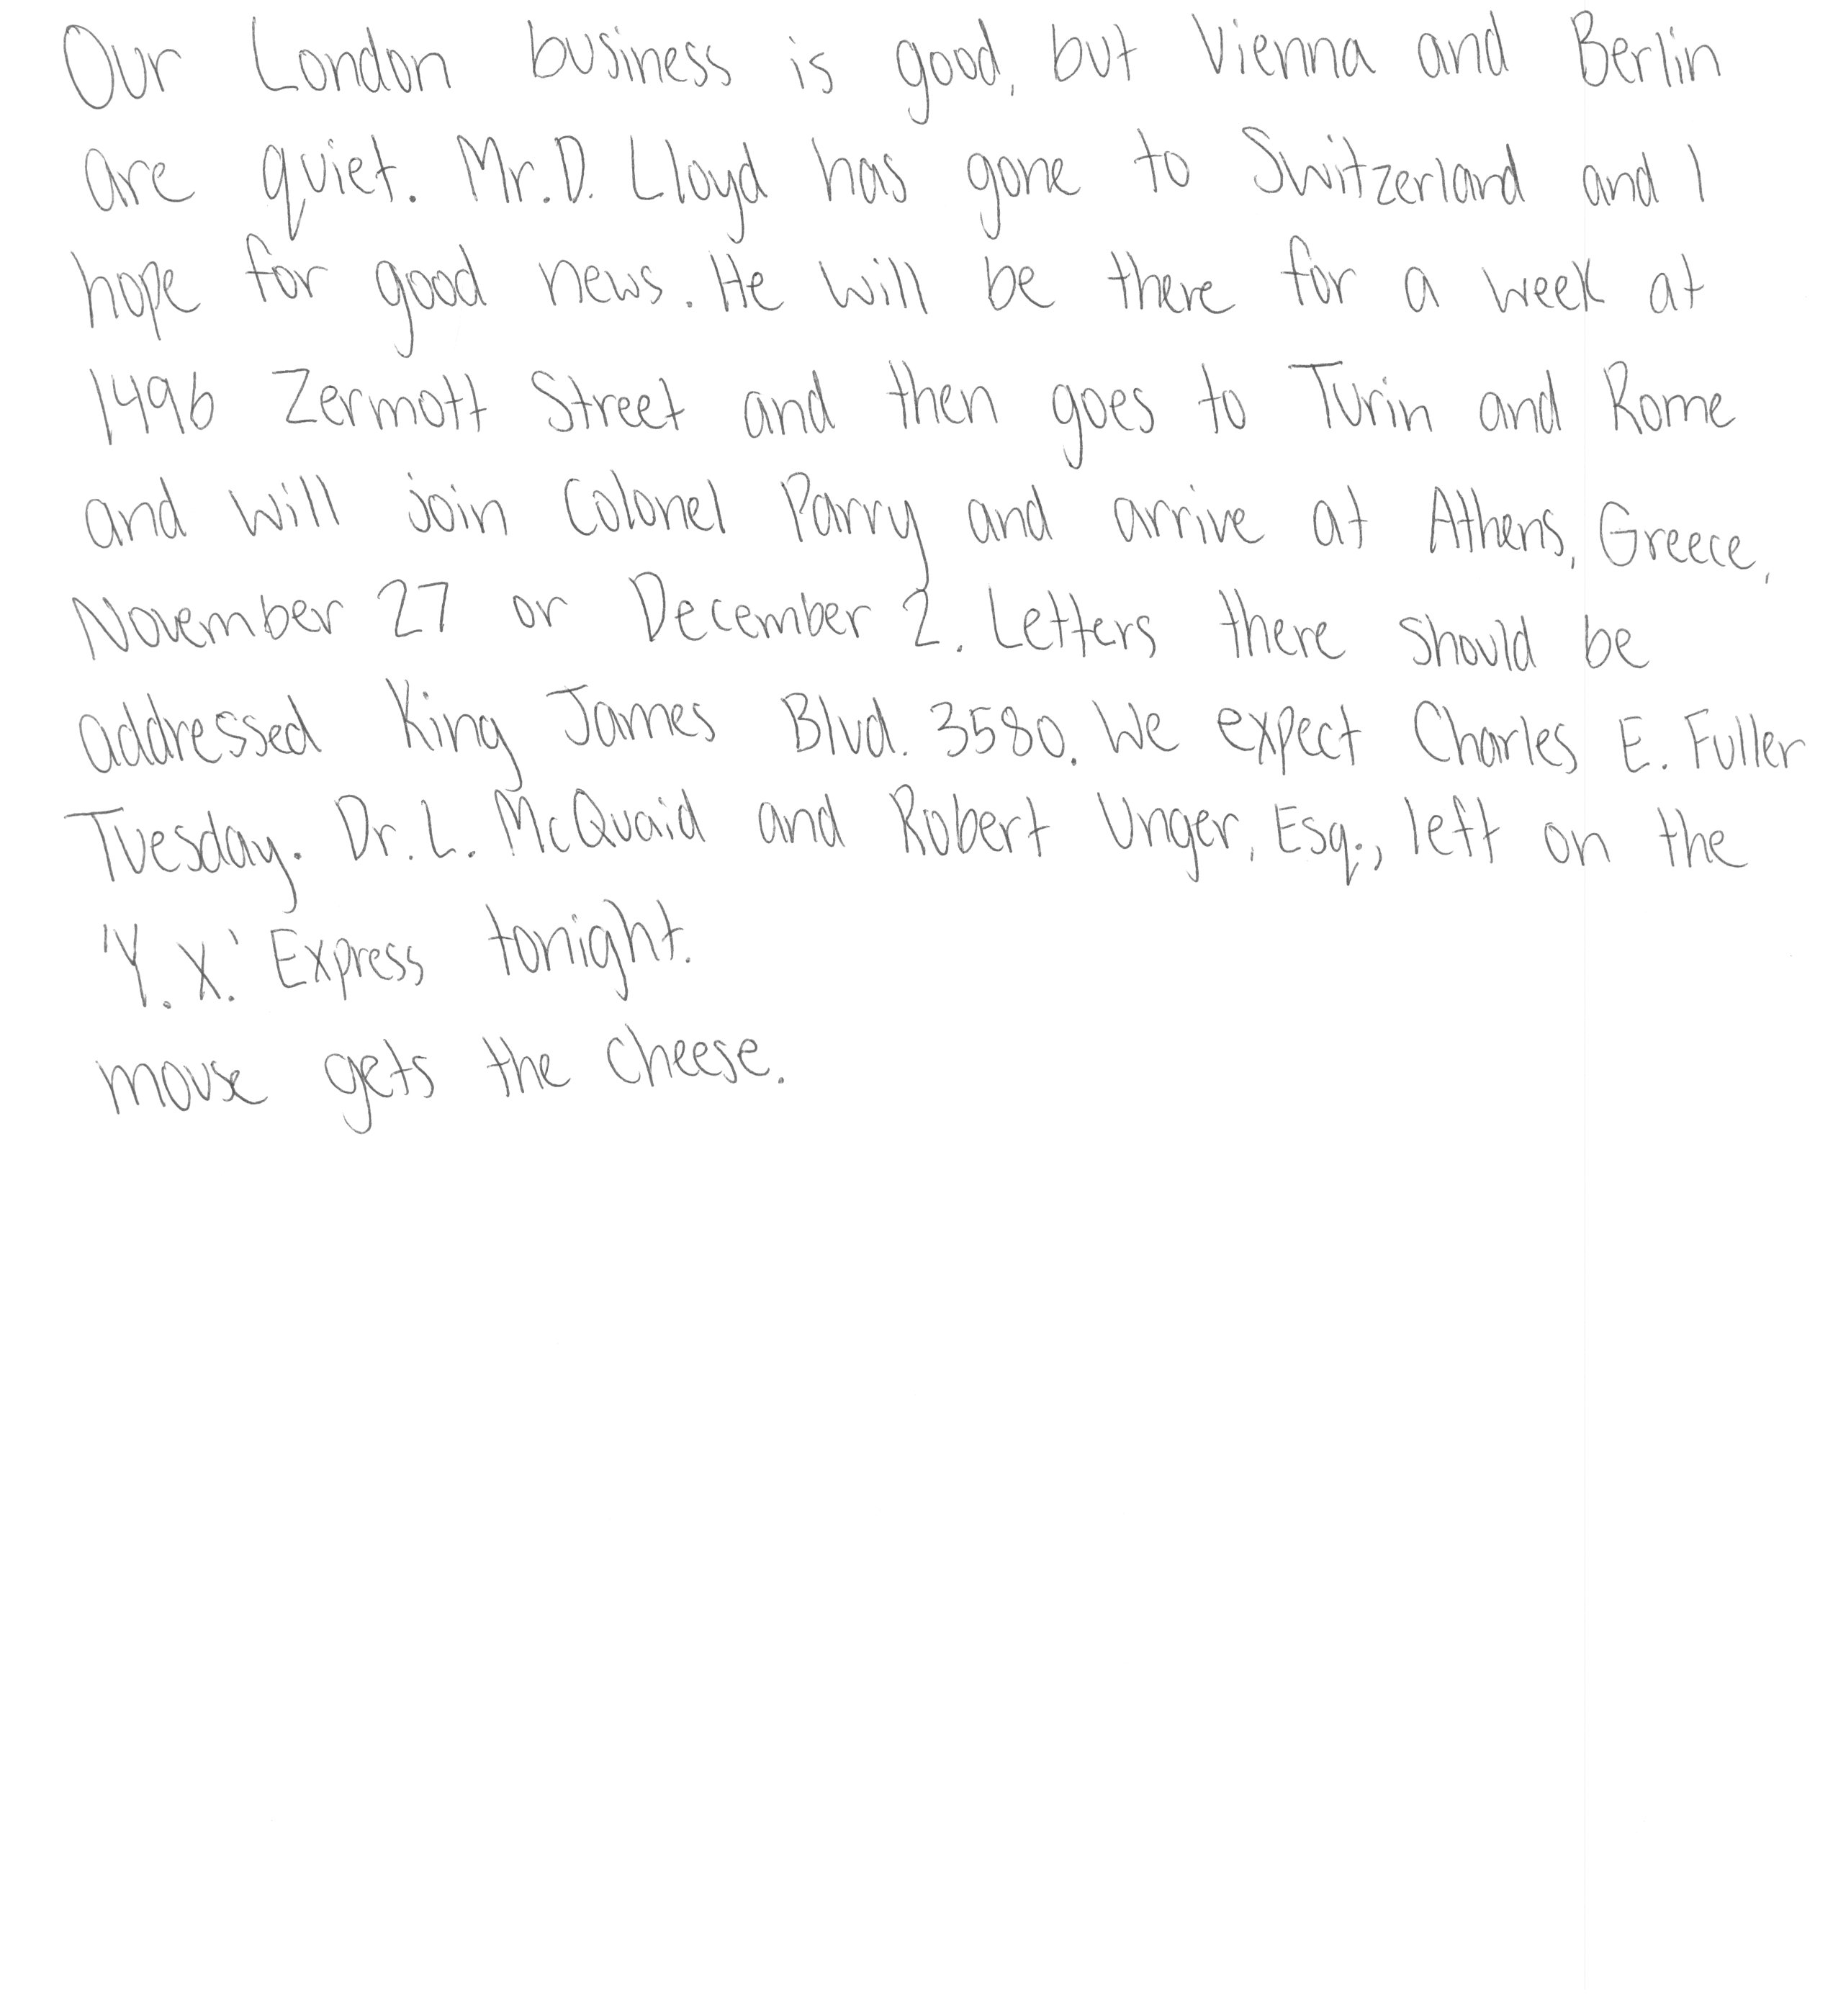 Our London business is good, but Vienna and Berlin
are quiet. Mr. D. Lloyd has gone to Switzerland and I
hope for good news. He will be there for a week at
1496 Zermott Street and then goes to Turin and Rome
and will join Colonel Parry and arrive at Athens, Greece,
November 27 or December 2. Letters there should be
addressed King James Blvd. 3580. We expect Charles E. Fuller
Tuesday. Dr. L. McQuaid and Robert Unger, Esq., left on the
'Y.X.' Express tonight.
mouse gets the cheese.